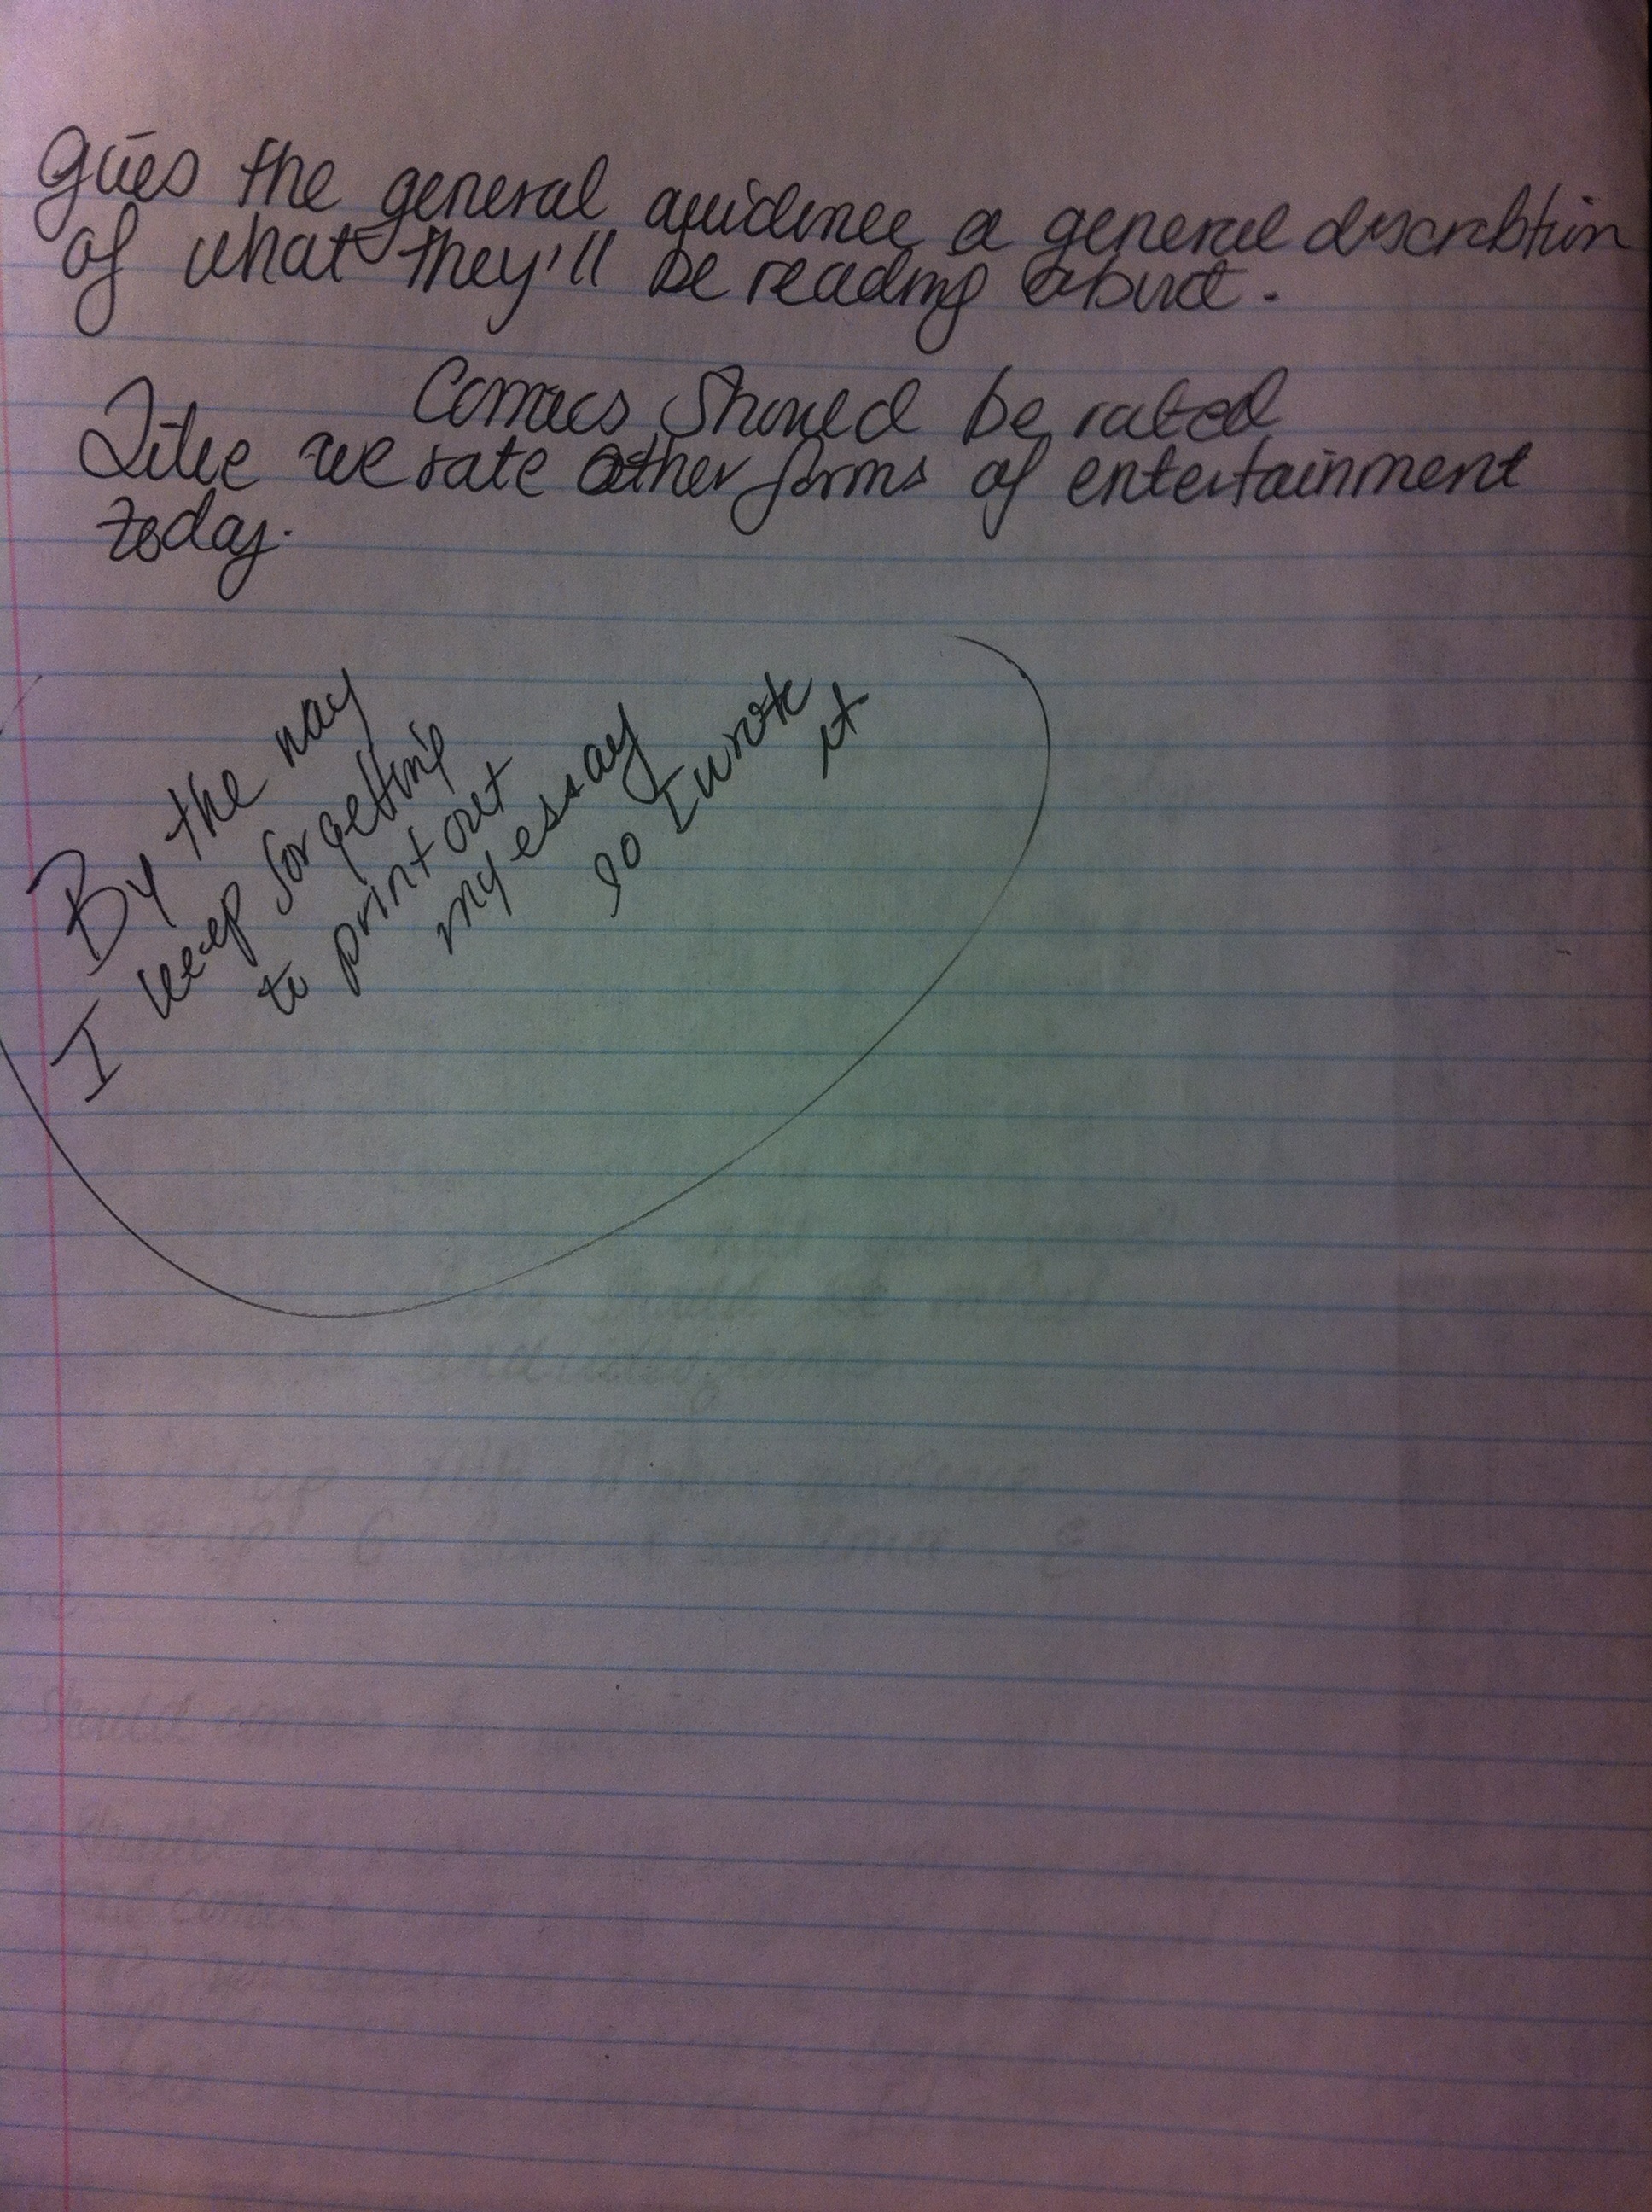 gives the general auidence a general discrebtion
of what they'll be reading about.
Comics should be rated
Like we rate other forms of entertainment
today.
By the way
I keep forgetting
to print out
my essay
so I wrote
it